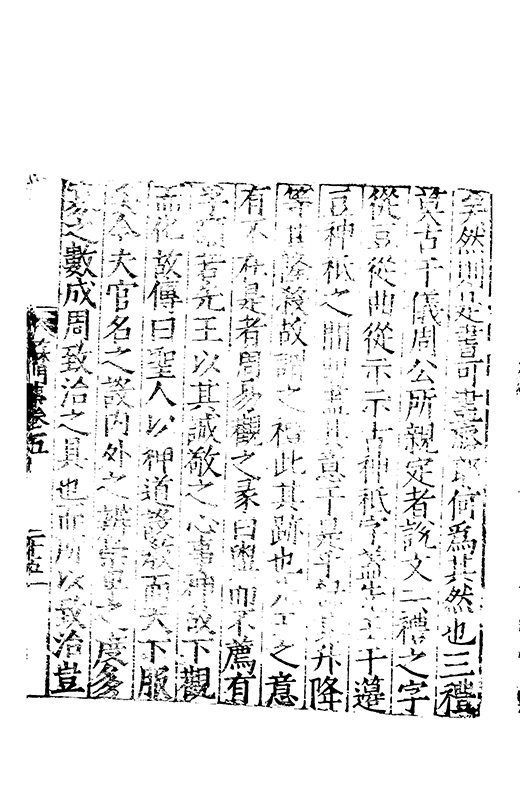 乎然則是書可盡廢邪何爲其然也三禮
莫古于儀周公所親定者說文一禮之字
從豆從曲從示示古神祇字蓋先王于籩
豆神祇之間 其意于是乎 其升降
等 隆殺故謂之禮此其跡也先王之意
有不在是者周易觀之彖曰盥而不薦有
孚顒若先王以其誠敬之心事神故下觀
而化故傳曰聖人以神道設教而天下服
今夫官名之設內外之辨 之度多
之數成周致治之具也而所以致治豈
卷五
二十五